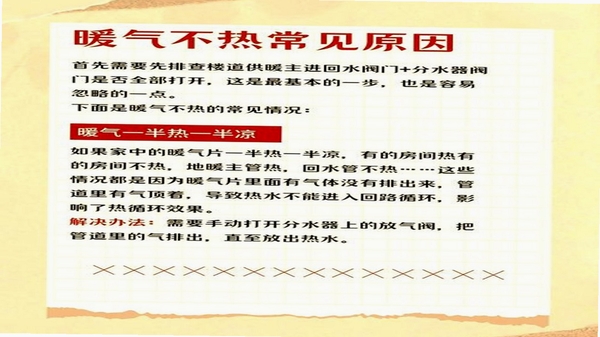 暖气不热常见原因
首先需要先排查楼道供暖主进回水阀门+分水器阀
门是否全部打开，这是最基本的一步，也是容易
忽略的一点。
下面是暖气不热的常见情况：
暖气一半热一半凉
如果家中的暖气片一半热一半凉，有的房间热有
的房间不热，地暖主管热，回水管不热……这些
情况都是因为暖气片里面有气体没有排出来，管
道里有气顶着，导致热水不能进入回路循环，影
响了热循环效果。
解决办法：需要手动打开分水器上的放气阀，把
管道里的气排出，直至放出热水。